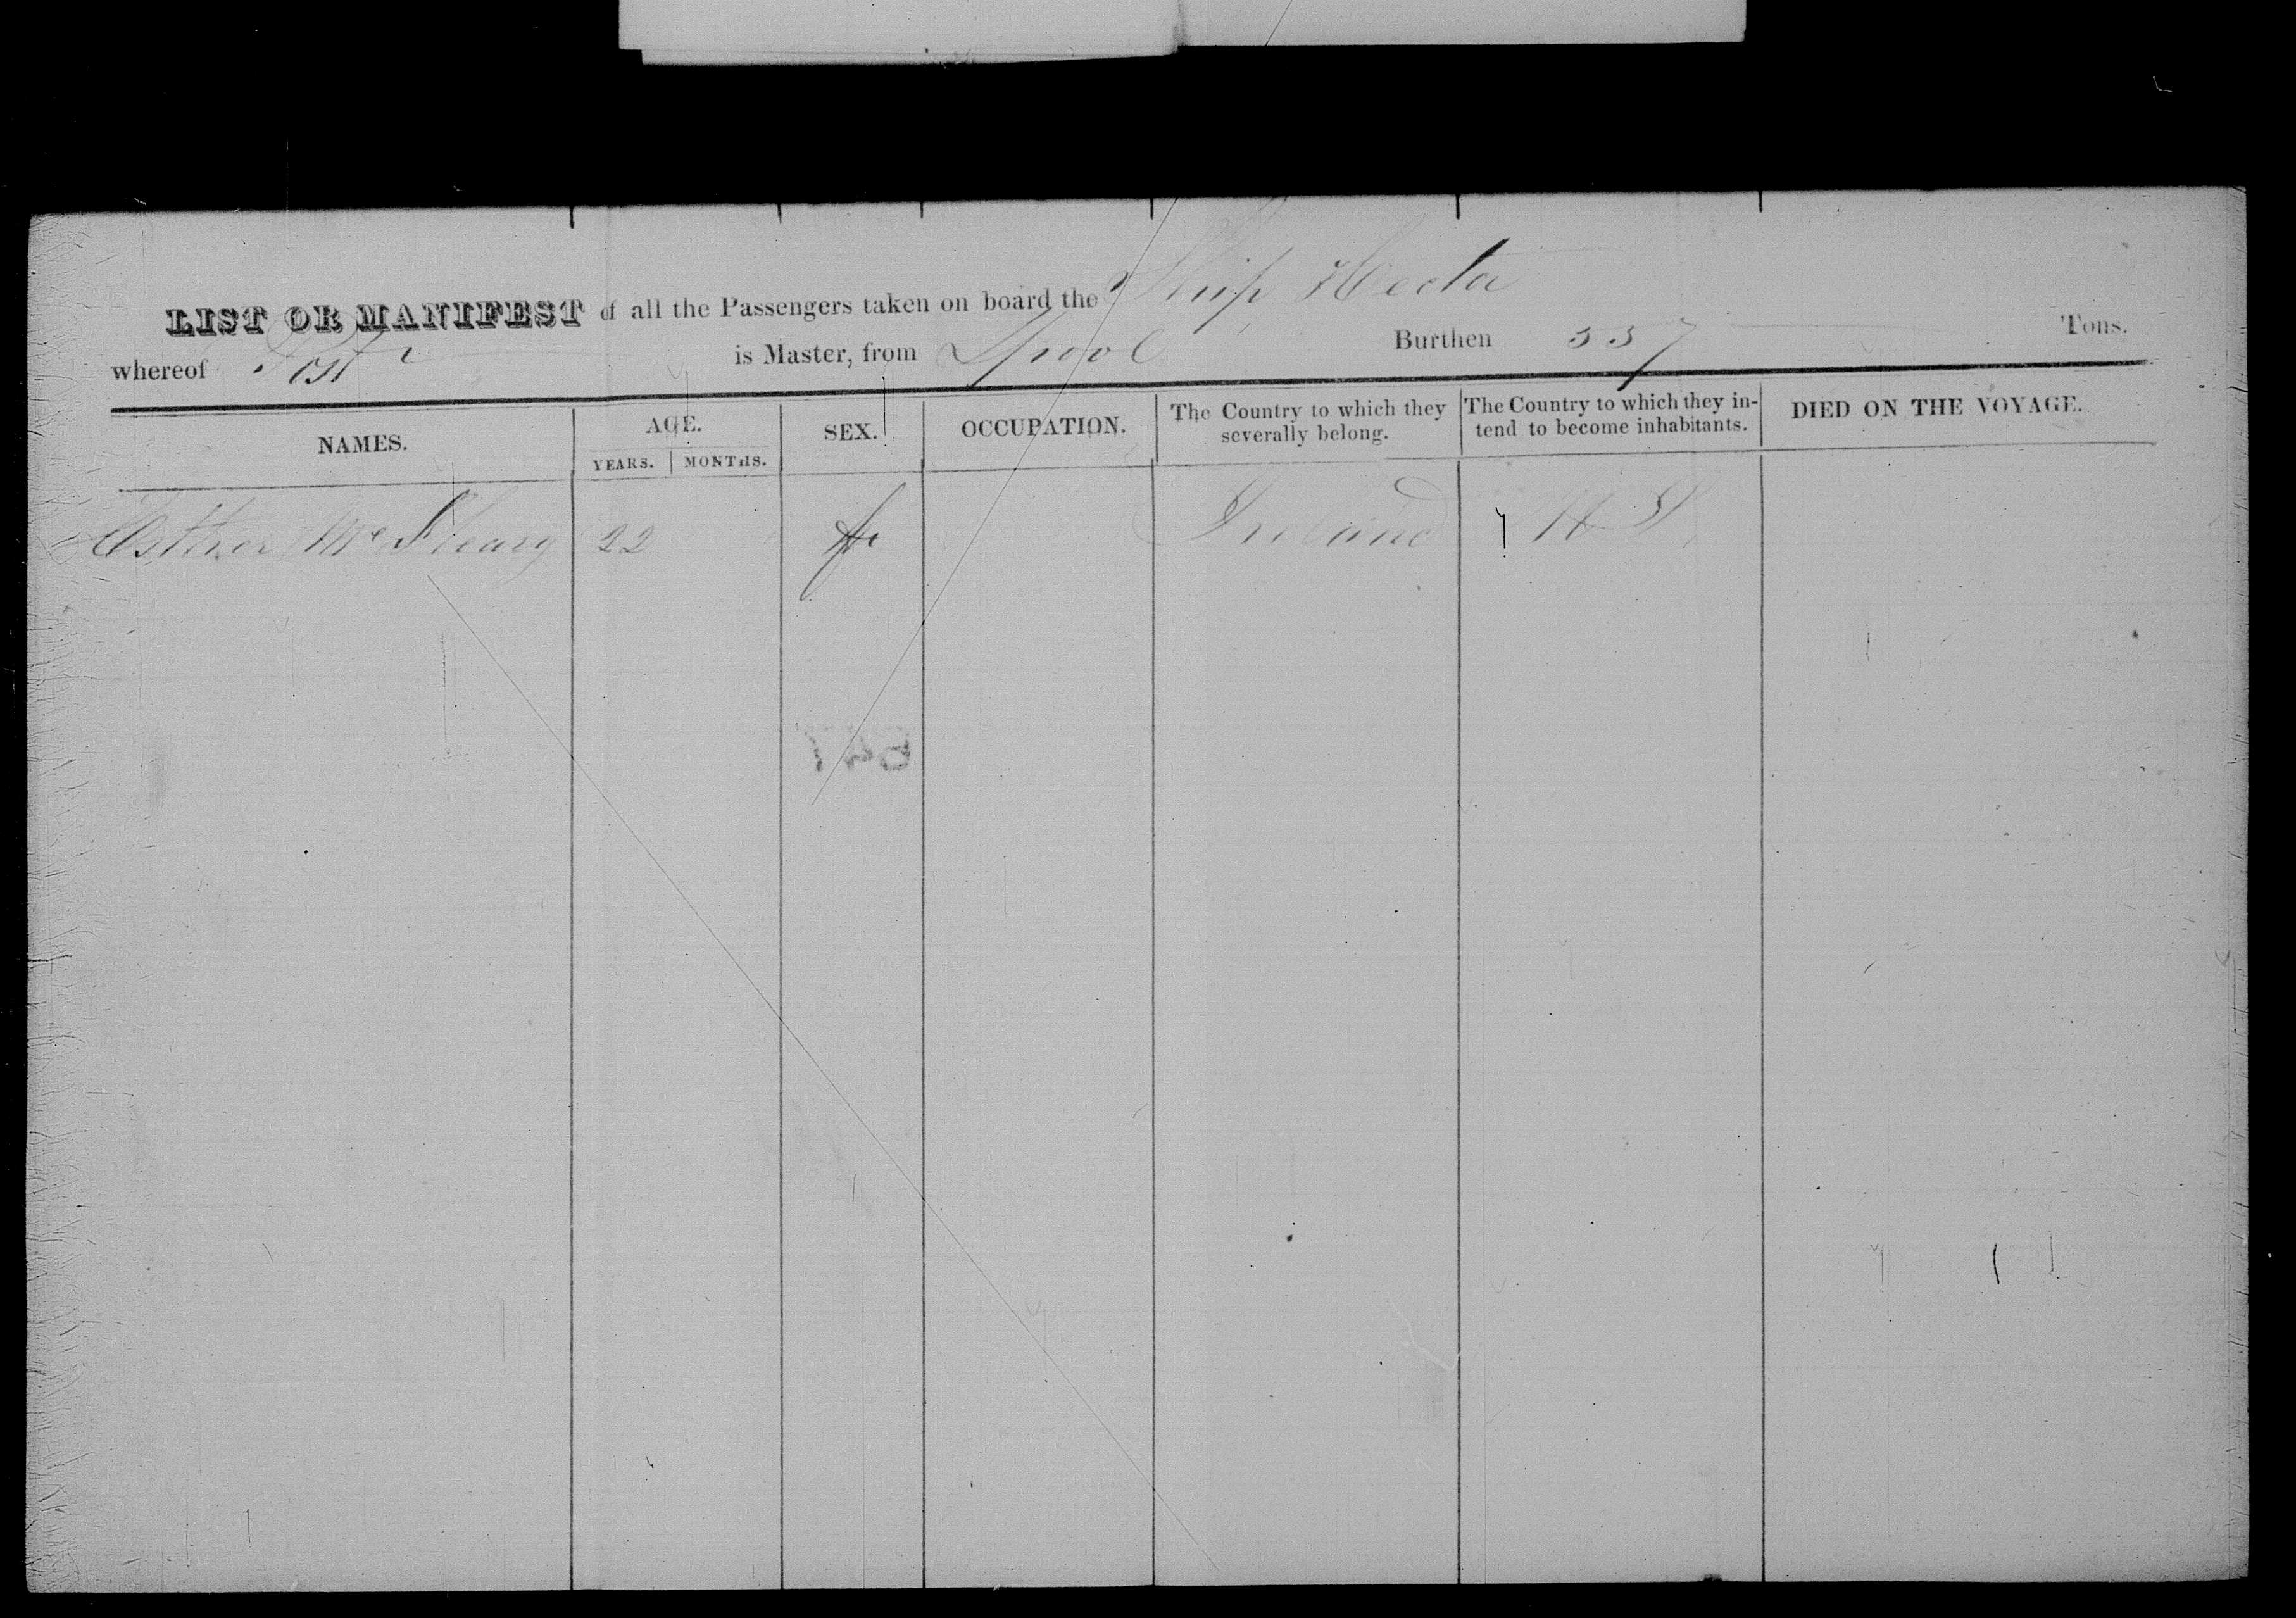 LIST OR MANIFEST of all the Passengers taken on board the Ship Hecla
whereof Post is Master, from Lpool Burthen 557 Tons.
NAMES. AGE. SEX. OCCUPATION. The Country to which they severally belong. The Country to which they in-tend to become inhabitants. DIED ON THE VOYAGE.
YEARS. MONTHS.
Esther Mc Sheary 22 fe Ireland U S
647